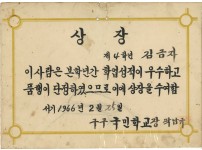 상장
제4학년 김금자
이 사람은 본학년간 학업성적이 우수하고
품행이 단정하였으므로 이에 상장을 수여함
서기 1966년 2월 25일
국민학교장